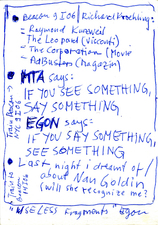 Beacon 9 I 06 / Richard
"Raymond Kurzweil
The Leopard (Visconti)
The Corporation (Movie
AdBusters (Magazin)
MTA says:
IF YOU SEE SOMETHING,
SAY SOMETHING
EGON says:
IF YOU SAY SOMETHING,
SEE SOMETHING
Last night i dreamt of/
about Nan Goldin
(will she recognize me?
"USELESS Fragments" Egon
Train Beacon →
NYC 9 I 06
Train to